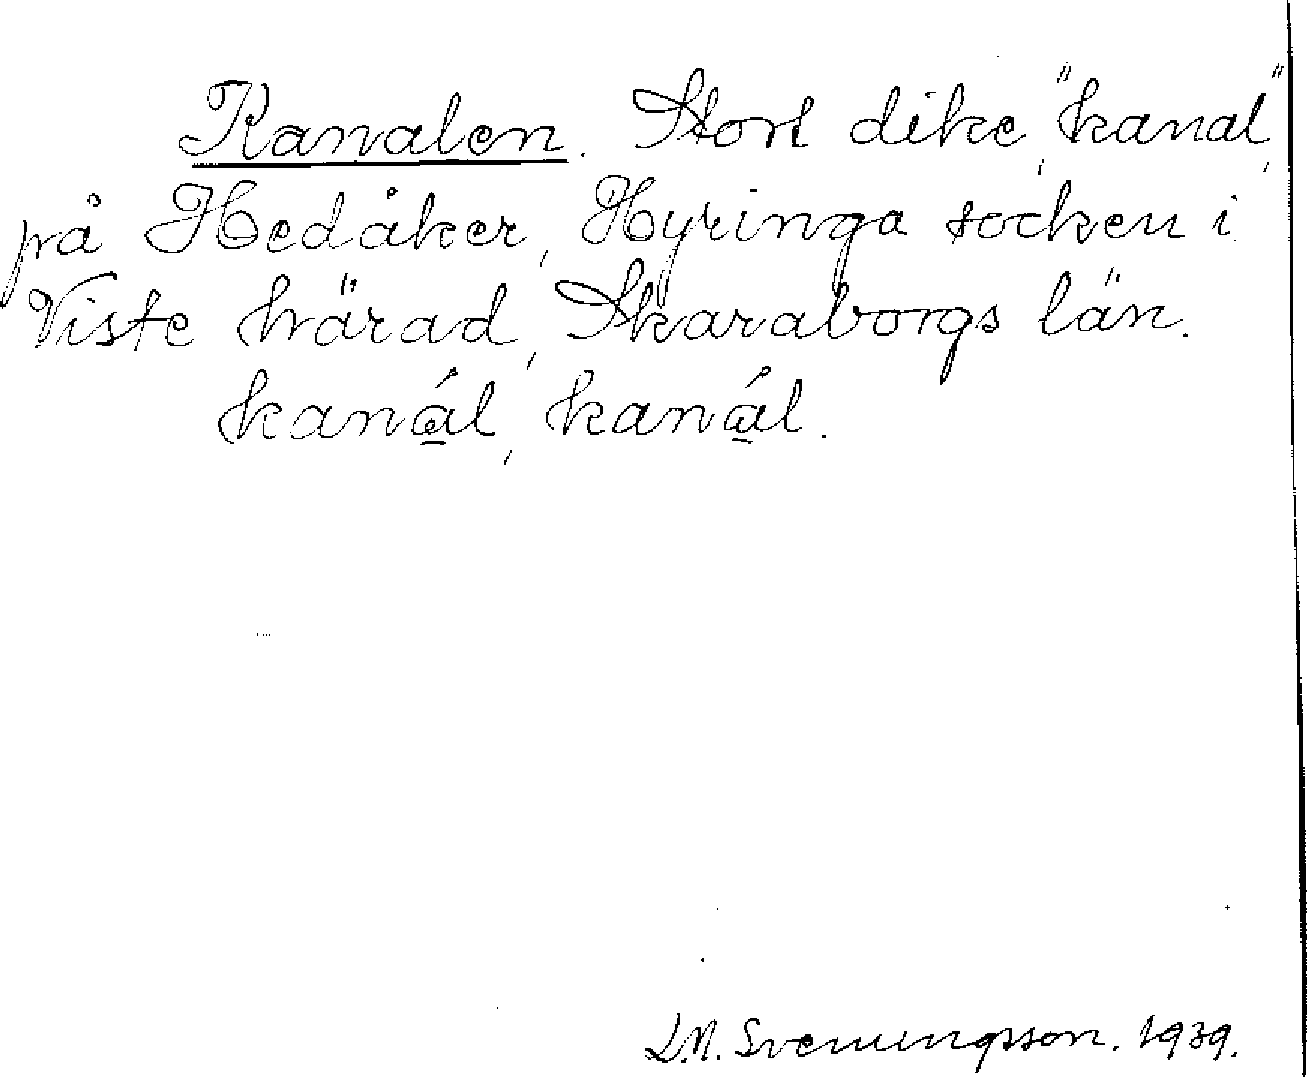 Kanalen. Stort dike, "kanal",
på Hedåker, Hyringa socken i
Viste härad, Skaraborgs län.
kaná̱l, kaná̱l.
L.M. Svenungsson. 1939.